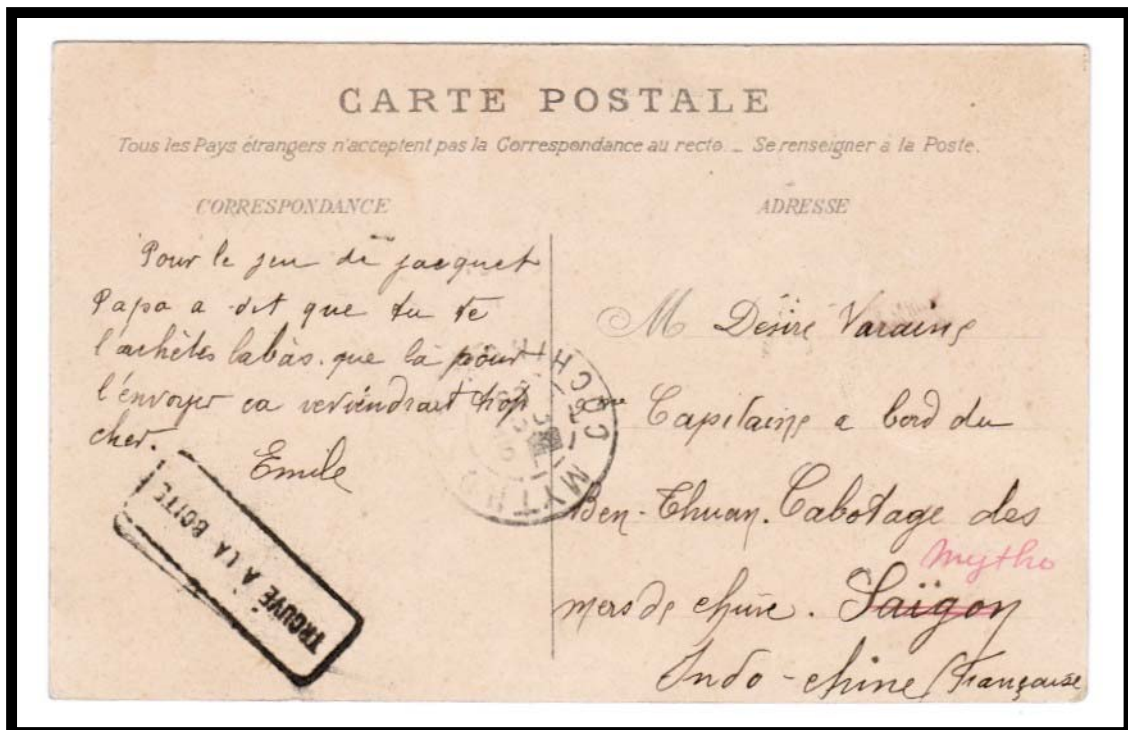 CARTE POSTALE
Tous les Pays étrangers n'acceptent pas la Correspondance au recto _ Se renseigner à la Poste.
CORRESPONDANCE
Pour le jeu de jacquet
Papa a dit que tu te
l'achètes labàs. que la pour
l'envoyer ca reviendrait trop
cher.
Emile
TROUVÉ A LA BOITE
MYTHO
ADRESSE
M Désiré Varaine
Capitaine a bord du
Ben-Thuan. Cabotage des
Mytho
mers de chine. Saïgon
Indo-chine Française